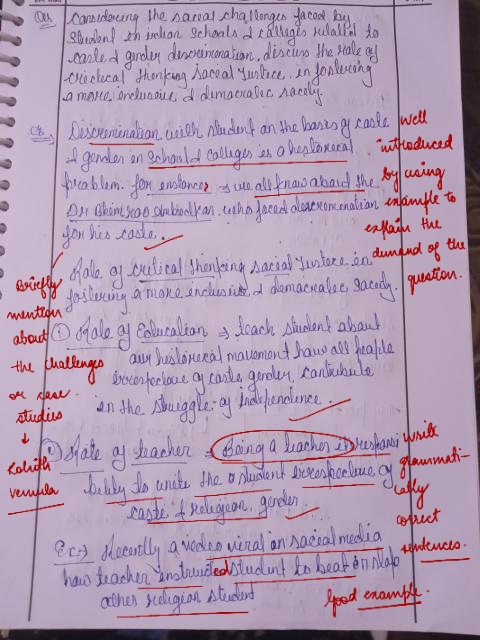 Qs. considering the saceal challenges faced by
student in indian schools & calleges related to
caste & gender descremenation. discuss the rale of
crictecal thenking saceal Justece. in fostering
a more inclusive & demacratec sacely.
Descremenation with student on the basis of caste
& gender in School & calleges is a hestorecal
problem. for enstance, → we all know about the
Dr Bheim rao Ambedkar. who faced descremenation
for his caste.
well
introduced
by using
example to
explain the
demand of the
question.
Rale of critecal thenking saceal Justece. in
fostering a more inclusive & demacratec sacely.
Briefly
mention
about
the challenges
or case
studies
↓
Rohith
vemula
① Rale of Educatian → teach student about
our hestorecal movement haw all people
errespecteve of caste, gender, cantribute
in the struggle of independence.
② Rale of teacher → Being a teacher it's respansi
belety to unite the student errespecteve of
caste & relegean, gender.
write
grammati-
cally
correct
sentences.
Ex:→ Recently a vedeo viral on saceal media
haw teacher enstructed student to beat on slap
other relegean student
Good example.